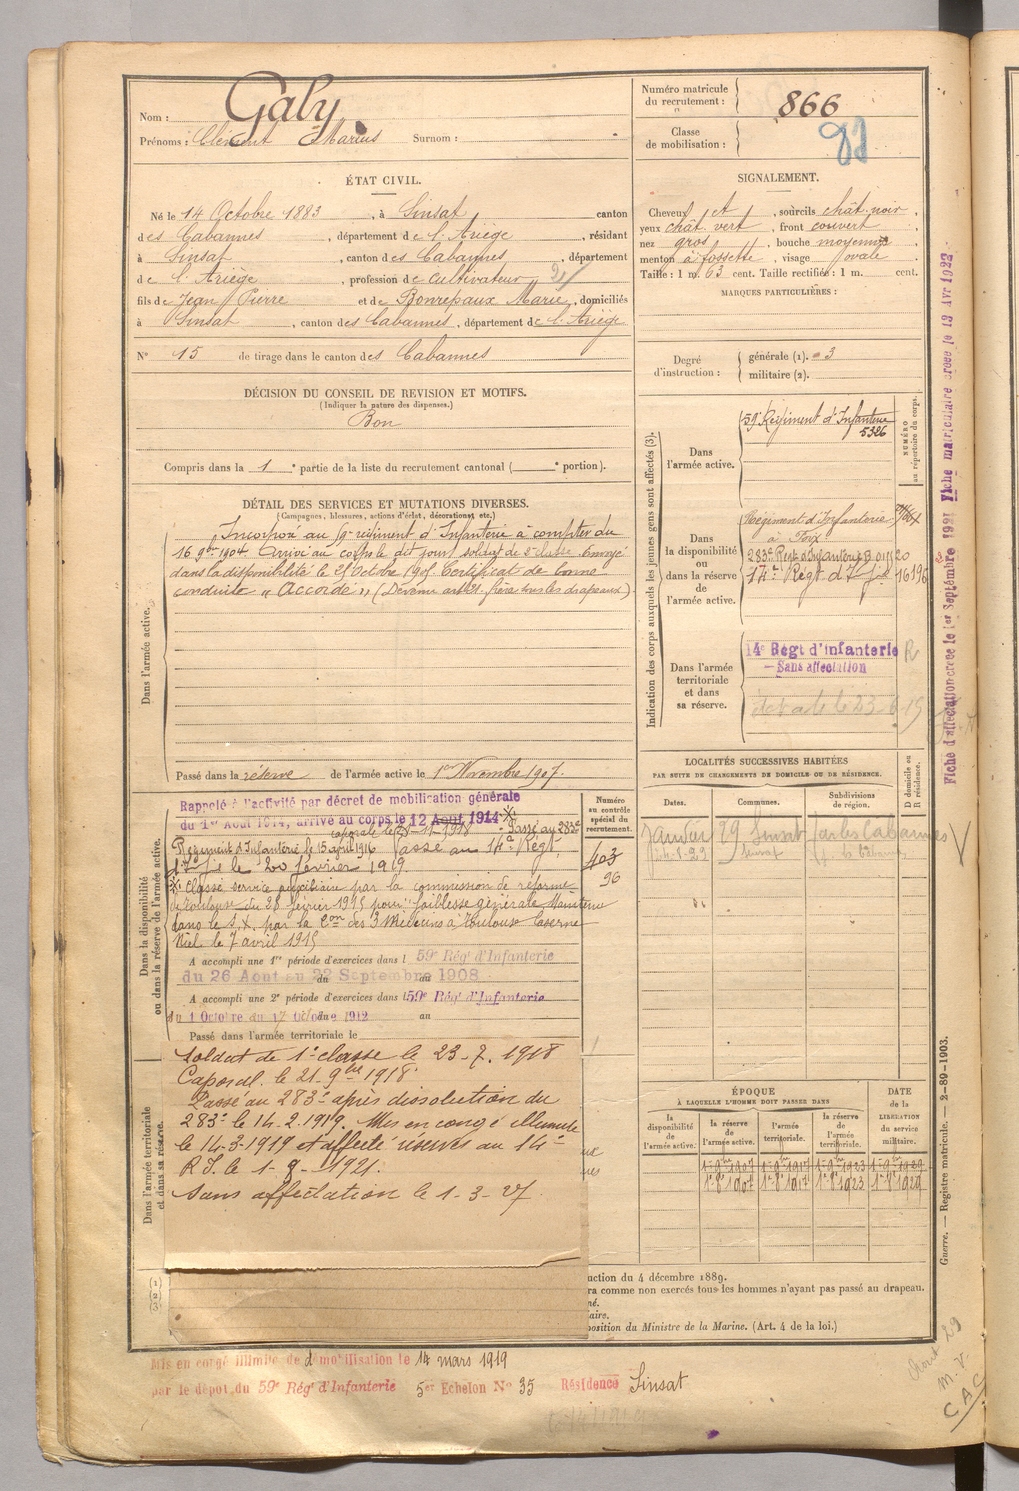 Nom : Galy
Prénoms : Clément Marius Surnom :
Numéro matricule du recrutement : 866
Classe de mobilisation :
ÉTAT CIVIL.
Né le 14 Octobre 1883, à Sinsat canton
des Cabannes, département de l'Ariège, résidant
à Sinsat, canton des Cabannes, département
de l'Ariège, profession de cultivateur
fils de Jean Pierre et de Bonrepaux Marie, domiciliés
à Sinsat, canton des Cabannes, département de l'Ariège
N° 15 de tirage dans le canton des Cabannes
SIGNALEMENT.
Cheveux et, sourcils chât. noir,
yeux chât. vert, front couvert,
nez gros, bouche moyenne,
menton à fossette, visage ovale
Taille : 1 m. 63 cent. Taille rectifiée : 1 m. cent.
MARQUES PARTICULIÈRES :
Degré d'instruction : générale (1). 3
militaire (2).
DÉCISION DU CONSEIL DE REVISION ET MOTIFS.
(Indiquer la nature des dispenses.)
Bon
Compris dans la 1e partie de la liste du recrutement cantonal ( e portion).
DÉTAIL DES SERVICES ET MUTATIONS DIVERSES.
(Campagnes, blessures, actions d'éclat, décorations, etc.)
Dans l'armée active.
Incorporé au 59e régiment d'Infanterie à compter du
16 9bre 1904. Arrivé au corps le dit jour soldat de 2e classe. Envoyé
dans la disponibilité le Octobre 1905. Certificat de bonne
conduite « Accordé » (Devenu frère sous les drapeaux)
Passé dans la réserve de l'armée active le 1er Novembre 1907.
Indication des corps auxquels les jeunes gens sont affectés (3).
NUMÉRO au répertoire du corps.
Dans l'armée active.
59e Régiment d'Infanterie
5326
Dans la disponibilité ou dans la réserve de l'armée active.
Régiment d'Infanterie
à Foix
283e Regt d'Infanterie
14e Régt d'Inf 16196
Dans l'armée territoriale et dans sa réserve.
14e Régt d'Infanterie
Sans affectation
Fiche d'affectation créée le 1er Septembre 1921 Fiche matriculaire créée le 13 Avr 1922
LOCALITÉS SUCCESSIVES HABITÉES
PAR SUITE DE CHANGEMENTS DE DOMICILE OU DE RÉSIDENCE.
Dates. Communes. Subdivisions de région. D domicile ou R résidence.
Janvier 29 Sinsat par les Cabannes
Numéro au contrôle spécial du recrutement.
403
96
Dans la disponibilité ou dans la réserve de l'armée active.
Rappelé à l'activité par décret de mobilisation générale
du 1er Août 1914, arrivé au corps le 12 Août 1914 Passé au 283e
caporal le 21-11-1918
Régiment d'Infanterie le 15 avril 1916 Passé au 14e Régt
Inf le 20 février 1919.
Classé service auxiliaire par la commission de réforme
de Toulouse du 28 février 1915 pour faiblesse générale Maintenu
dans le S.X. par la Con des 3 Médecins à Toulouse Caserne
Niel le 7 avril 1915
A accompli une 1re période d'exercices dans l 59e Rég' d'Infanterie
du 26 Aout au 22 Septembre 1908
A accompli une 2e période d'exercices dans l 59e Rég' d'Infanterie
du 1 Octobre du 17 Octobre 1912 au
Passé dans l'armée territoriale le
Dans l'armée territoriale et dans sa réserve.
Soldat de 1e classe le 23-7-1918
Caporal le 21-9bre 1918.
Passé au 283e après dissolution du
283e le 14-2-1919. Mis en congé illimité
le 14-3-1919 et affecté réserves au 14e
R.I. le 1-9-1921.
Sans affectation le 1-3-27.
ÉPOQUE
À LAQUELLE L'HOMME DOIT PASSER DANS
la disponibilité de l'armée active. la réserve de l'armée active. l'armée territoriale. la réserve de l'armée territoriale. DATE de la LIBÉRATION du service militaire.
1er 9bre 1907 1er 9bre 1917 1er 9bre 1923 1er 9bre 1929
1er 8e 1907 1er 8e 1917 1er 8e 1923 1er 8e 1929
Guerre. — Registre matricule. — 2-89-1903.
(1)
(2)
(3)
uction du 4 décembre 1889.
ra comme non exercés tous les hommes n'ayant pas passé au drapeau.
né.
aire.
position du Ministre de la Marine. (Art. 4 de la loi.)
Mis en congé illimité de démobilisation le 14 mars 1919
par le dépot du 59e Rég' d'Infanterie 5e Echelon N° 35 Résidence Sinsat
M. V.
CAC